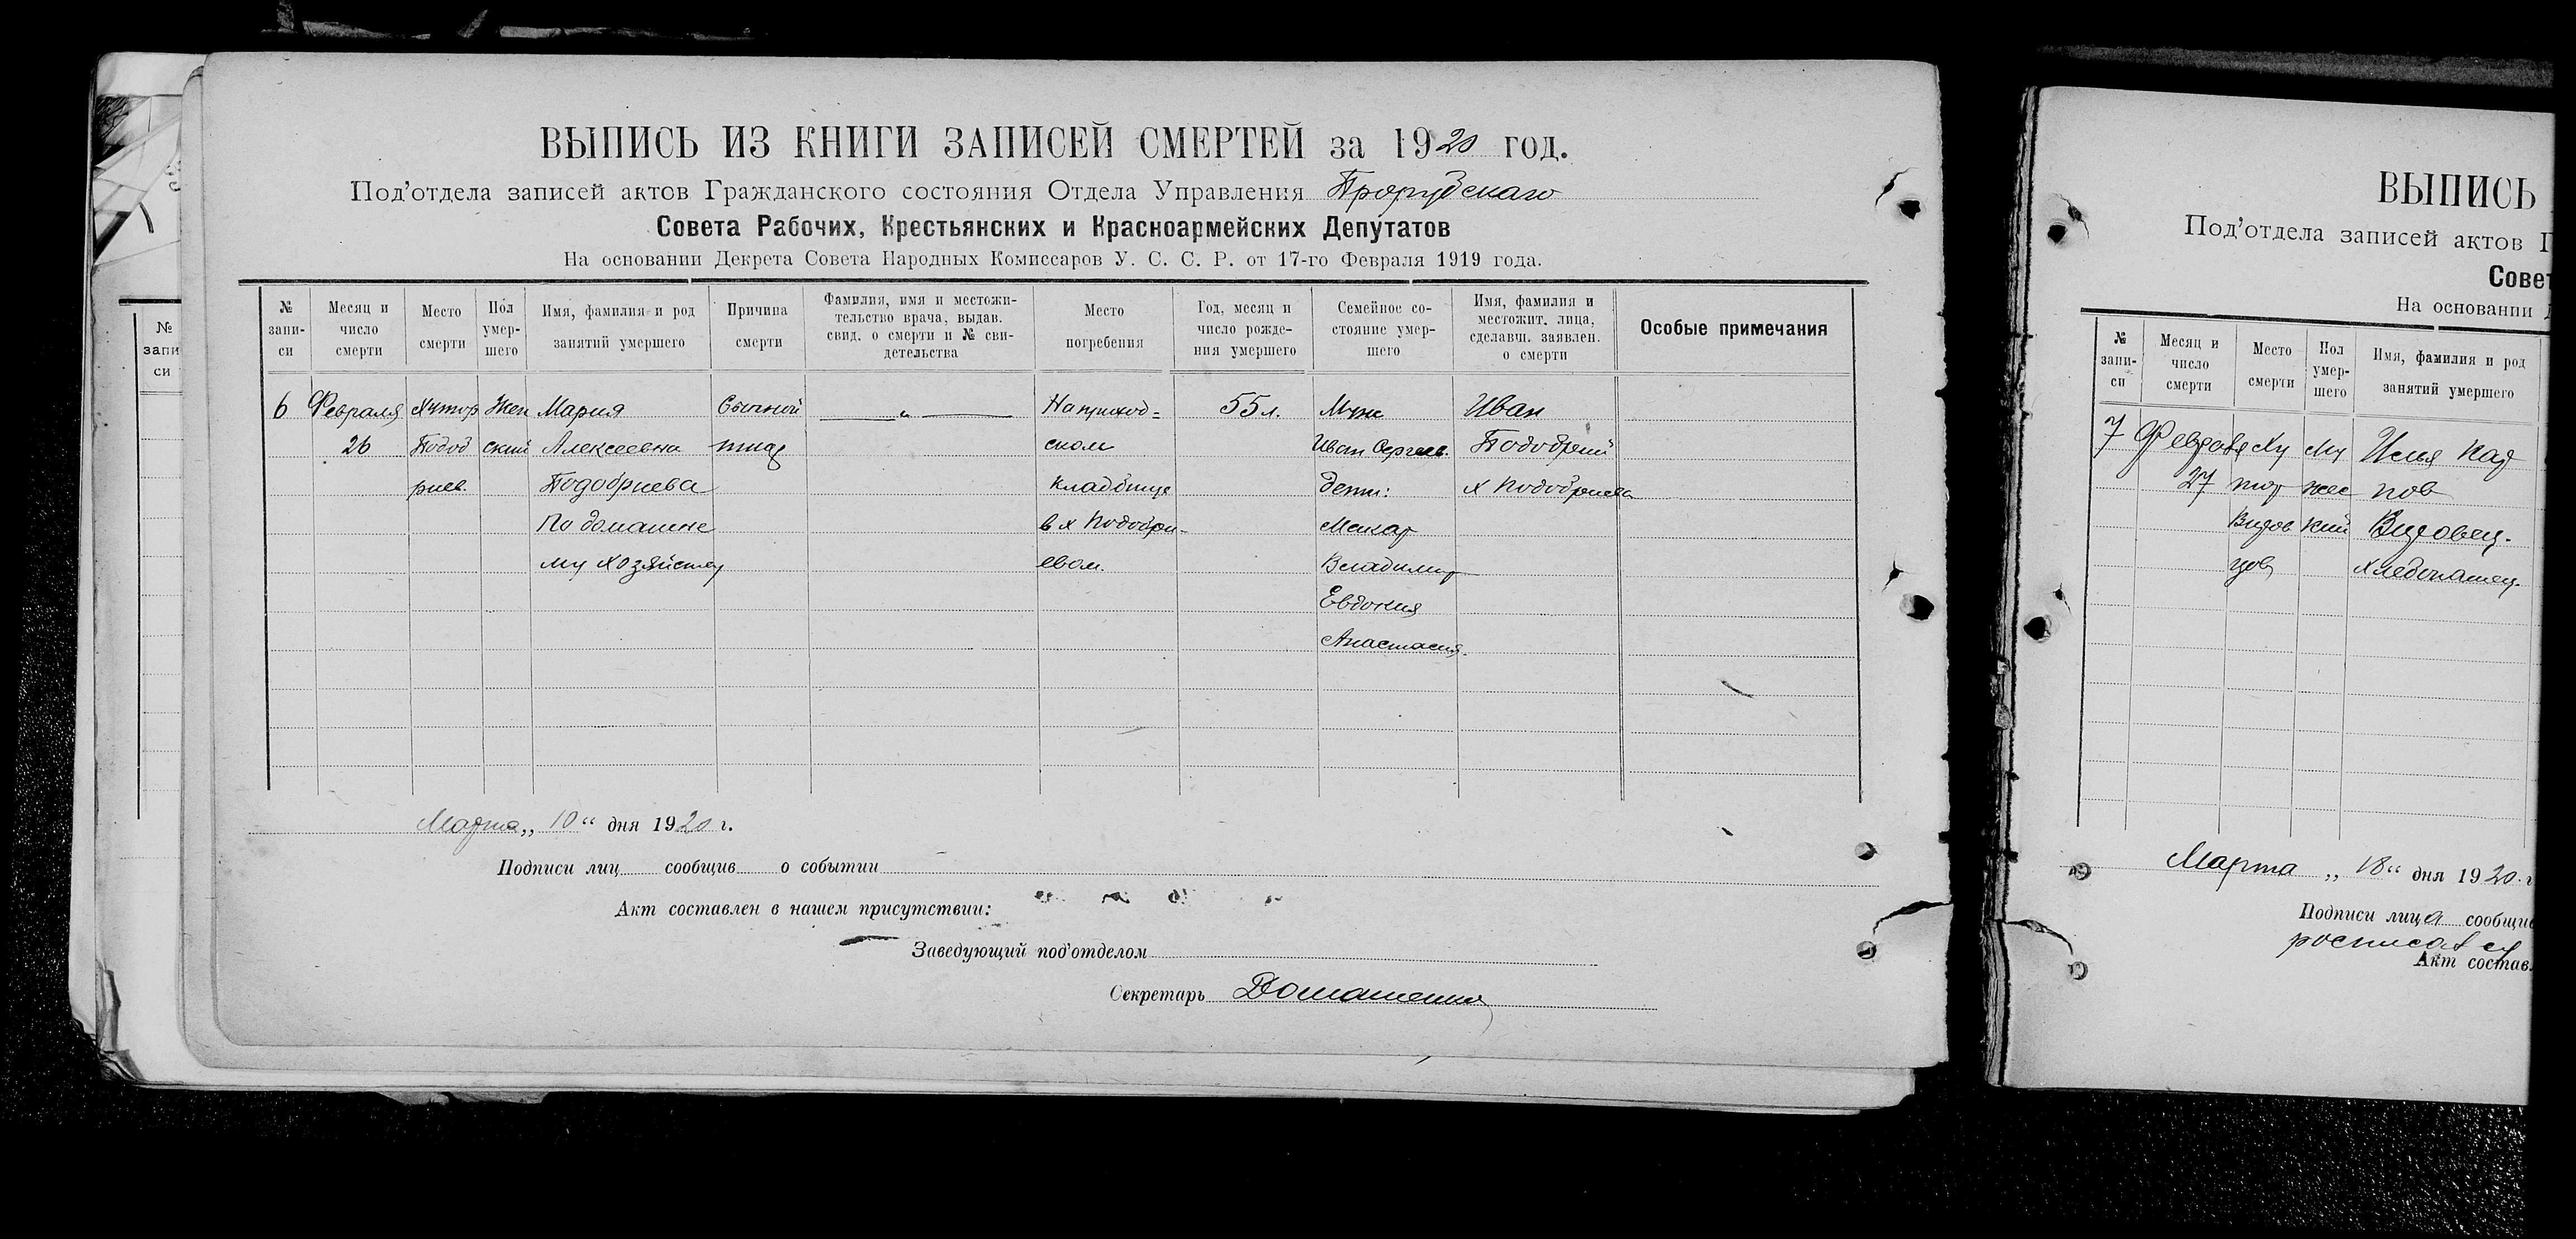 ВЫПИСЬ ИЗ КНИГИ ЗАПИСЕЙ СМЕРТЕЙ за 1920 год.
Под'отдела записей актов Гражданского состояния Отдела Управления
Совета Рабочих, Крестьянских и Красноармейских Депутатов
На основании Декрета Совета Народных Комиссаров У. С. С. Р. от 17-го Февраля 1919 года.
№ запи- си
Месяц и число смерти
Место смерти
Пол умер- шего
Имя, фамилия и род занятий умершего
Причина смерти
Фамилия, имя и местожи- тельство врача, выдав. свид. о смерти и № сви- детельства
Место погребения
Год, месяц и число рожде- ния умершего
Семейное со- стояние умер- шего
Имя, фамилия и местожит. лица, сделавш. заявлен. о смерти
Особые примечания
6 Февраля Хутор Жен Мария Сыпной " На приход= 55 л. Муж Иван
26 Подоб ский Алексеевна тиф ском Иван Сергеев. Подобрий
риев. Подобриева кладбище дети: х Подобриева
По домашне в х Подобри- Макар
му хозяйству евом. Владимир
Евдокия
Анастасия.
Марта „ 10 “ дня 1920 г.
Подписи лиц сообщив о событии
Акт составлен в нашем присутствии:
Заведующий под'отделом
Секретарь Домашенко
№
запи
си
ВЫПИСЬ
Под'отдела записей актов Г
Совет
На основании
№ запи- си
Месяц и число смерти
Место смерти
Пол умер- шего
Имя, фамилия и род занятий умершего
7 Февраля Ху Му Илья
27 тор жес
Видов кий Видовец.
цов Хлебопашец.
Марта „ 18 “ дня 1920 г
Подписи лица сообщив
росписался
Акт состав.